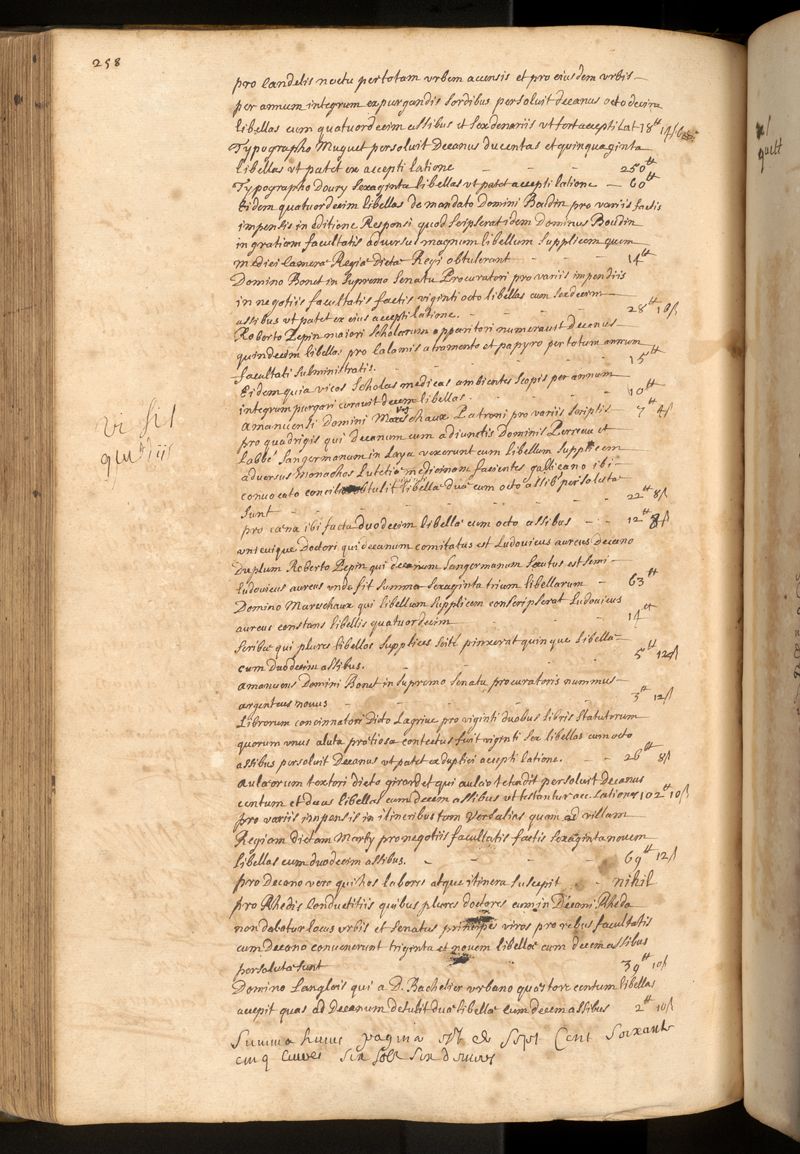 258
pro Candelis noctu per totam urbem accensis et pro eiusdem urbis
per annum integrum expurgandis sordibus persoluit decanus octodecim
libellas cum quatuordecim assibus et sex denariis ut fert accepti lat 18tt 14ſ 6
Typographo Muguet persoluit Decanus ducentas et quinquaginta
libellas ut patet ex accepti latione 250tt
Typographo Doury sexaginta libellas ut patet accepti latione 60tt
Eidem quatuordecim libellas de mandato Domini Boudin pro variis factis
impensis in editione Responsi quod scripserat idem Dominus Boudin
in gratiam facultatis adversus magnum libellum supplicem quem
medici Cameræ Regiæ dictæ Regi obtulerant 14tt
Domino Bonet in supremo Senatu Procuratori pro variis impendiis
in negotiis facultatis factis viginti octo libellas cum sexdecim
assibus ut patet ex eius accepti latione. 28tt 16ſ
Roberto Pepin maiori Scholarum apparitori numeravit decanus
quindecim libellas pro calamis atramento et papyro per totum annum
facultati subministratis. 15tt
Eidem quia vicos Scholas medicas ambientes scopis per annum
integrum purgari curavit decem libellas 10tt
Amanuensi Domini Mareschaux Patroni pro variis scriptis 7tt 4ſ
pro quadrigis qui decanum cum adiunctis Dominis Perreau et
Labbé Sangermanum in Laya vexerunt cum libellum supplicem
adversus monachos Lutetiæ medicinam facientes gallicano ibi
convocato concilio obtulit libellæ duæ cum octo assib' persolutæ
sunt 22tt 8ſ
pro cœna ibi facta duodecim libellæ cum octo assibus 12tt 8ſ
unicuique Doctori qui decanum comitatus est Ludovicus aureus decano
Duplum Roberto Pepin qui decanum Sangermanum secutus est semi
Ludovicus aureus unde fit summa sexaginta trium libellarum 63tt
Domino Mareschaux qui libellum supplicem conscripserat Ludovicus
aureus constans libellis quatuordecim 14tt
scribæ qui plures libellos supplices scitè pinxerat quinque libellæ
cum duodecim assibus. 5tt 12ſ
amanuens Domini Bonet in supremo Senatu procuratoris nummus
argenteus novus 3tt 12ſ
Librorum concinnatori Dicto Lagrive pro viginti duobus libris statutorum
quorum unus aluta pretiosa contectus fuit viginti sex libellas cum octo
assibus persoluit Decanus ut patet ex duplici accepti latione. 26tt 8ſ
Aulæorum textori dicto girardet qui aulæa tetendit persoluit Decanus
centum et duas libellas cum decem assibus ut testantur acc. lationes 102tt 10ſ
pro variis impensis in itineribus tam Versalias quam ad villam
Regiam dictam Marly pro negotiis facultatis factis sexaginta novem
libellas cum duodecim assibus. 69tt 12ſ
pro Decano vero qui hos labores atque itinera suscepit nihil
pro Rhedis Conductitiis quibus plures doctores cum in Decani Rheda
non dabatur locus urbis et Senatus principes viros pro rebus facultatis
cum Decano convenerunt triginta et novem libellæ cum decem assibus
persolutæ sunt 39tt 10ſ
Domino Langlois qui a D. Bachelier urbano quæstore centum libellas
accepit quas ad Decanum detulit duæ libellæ cum decem assibus 2tt 10ſ
Summa huius pagina est de sept Cent soixante
cinq livres six sols six deniers